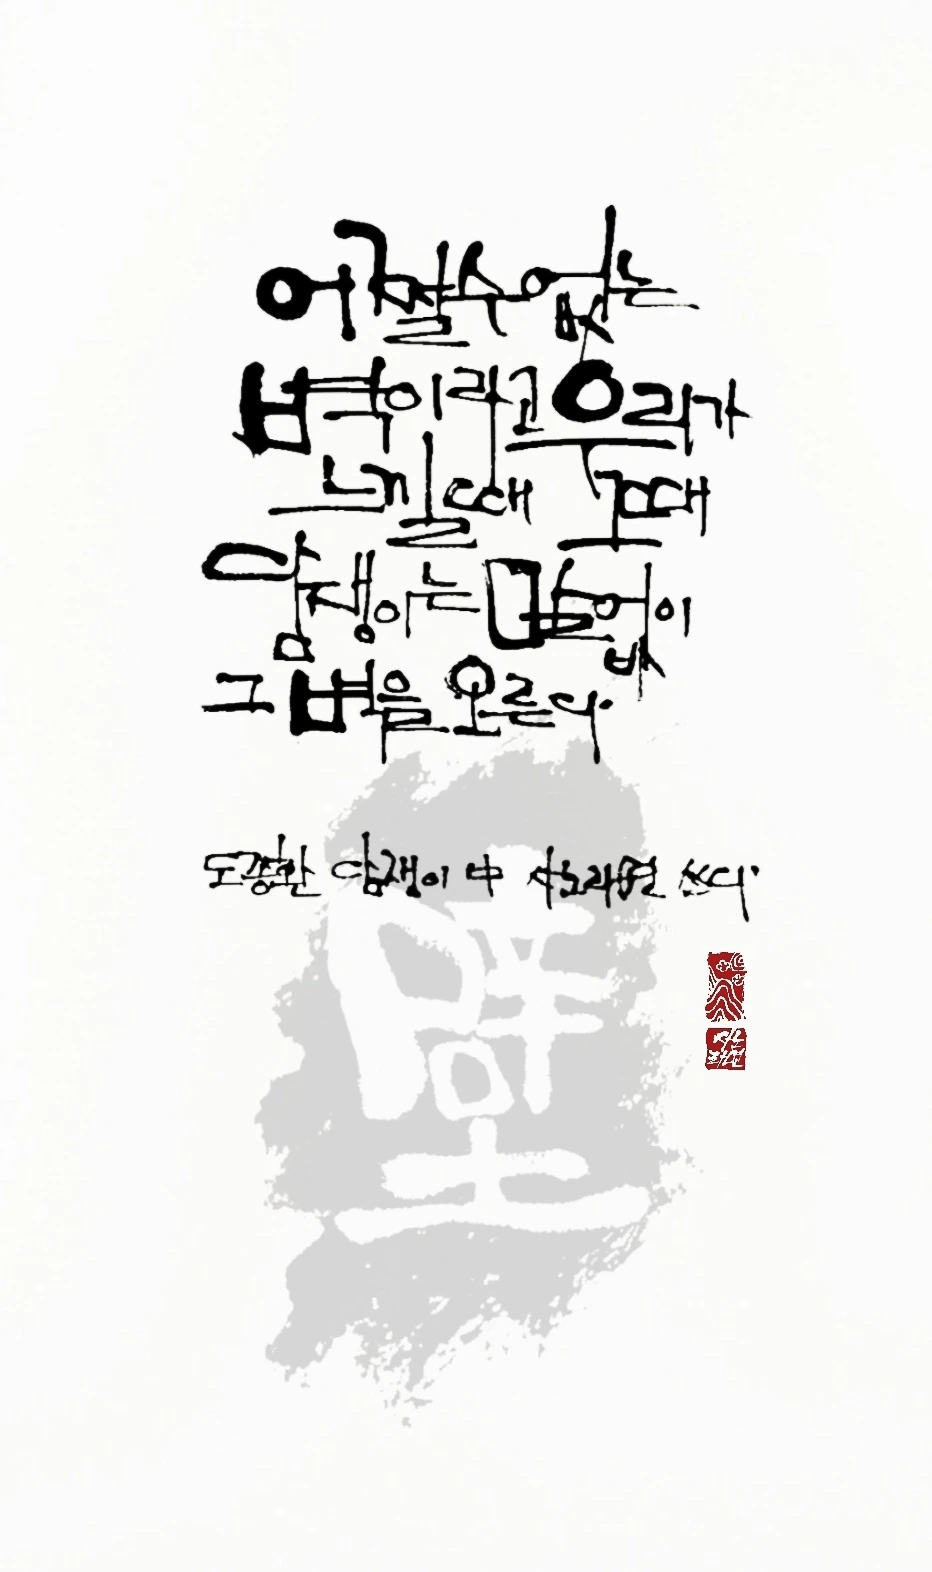 어쩔수 없는
벽이라고 우리가
느낄때 그때
담쟁이는 말 없이
그 벽을 오른다
도종환 담쟁이 中 쓰다
壁